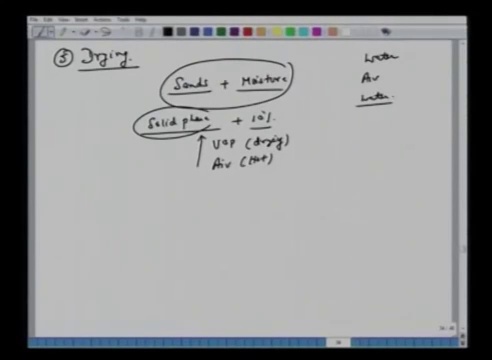 File Edit View Insert Actions Tools Help
⑤ Drying.
Sands + Moisture
Solid phase + 10%
Vap (drying)
Air (Hot)
Water
Air
Water